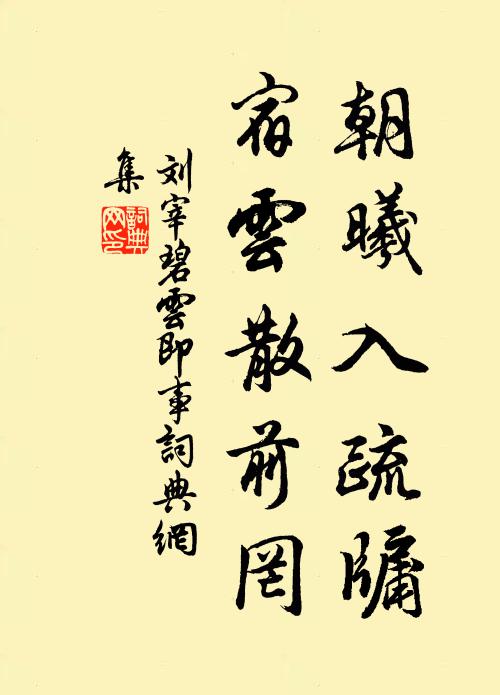 朝曦入疏牖
宿雲散前罔
刘宰碧雲即事詞典網
集
詞典
网印